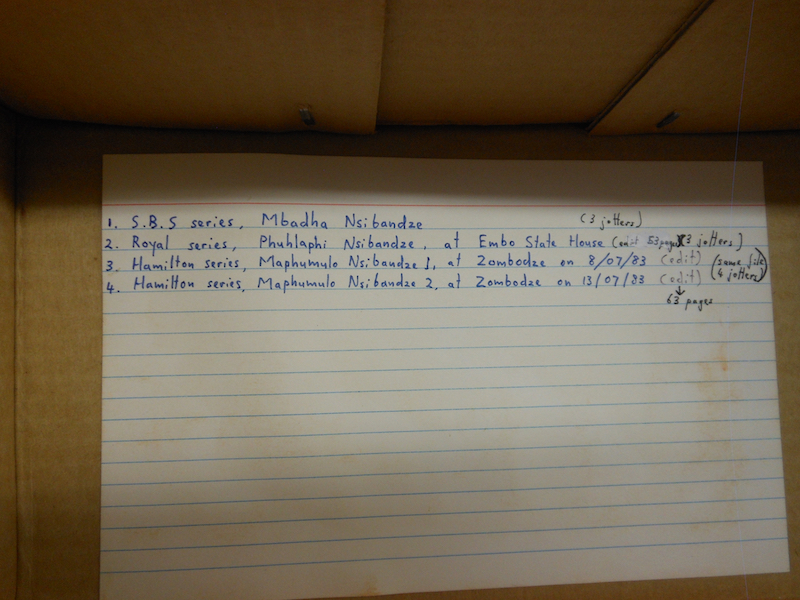 1. S.B.S series, Mbadha Nsibandze (3 jotters)
2. Royal series, Phuhlaphi Nsibandze, at Embo State House (edit 53 pages) (3 jotters)
3. Hamilton series, Maphumulo Nsibandze 1, at Zombodze on 8/07/83 (edit) (same file
4. Hamilton series, Maphumulo Nsibandze 2, at Zombodze on 13/07/83 (edit) 4 jotters)
63 pages